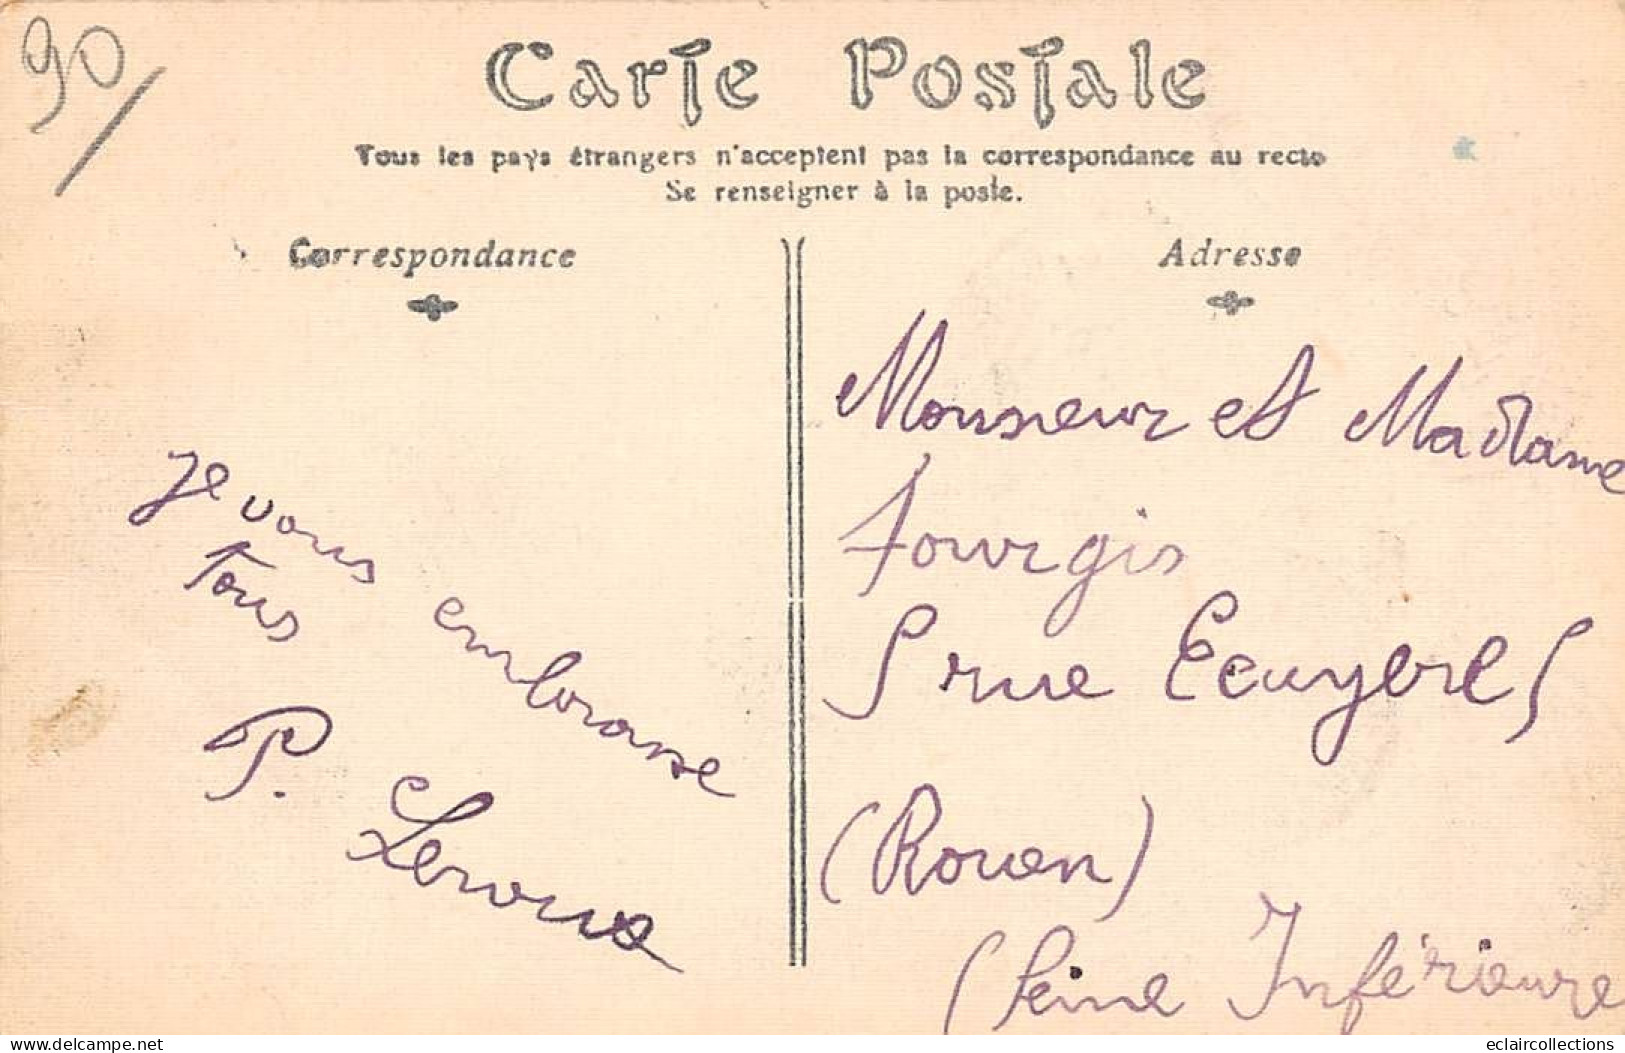 90/
Carte Postale
Tous les pays étrangers n'acceptent pas la correspondance au recto
Se renseigner à la poste.
Correspondance
Je vous embrasse
Tous
P. Leroux
Adresse
Monsieur et Madame
Fourgis
rue Ecuyeres
(Rouen)
(Seine Inférieure
delcampe.net
eclaircollections